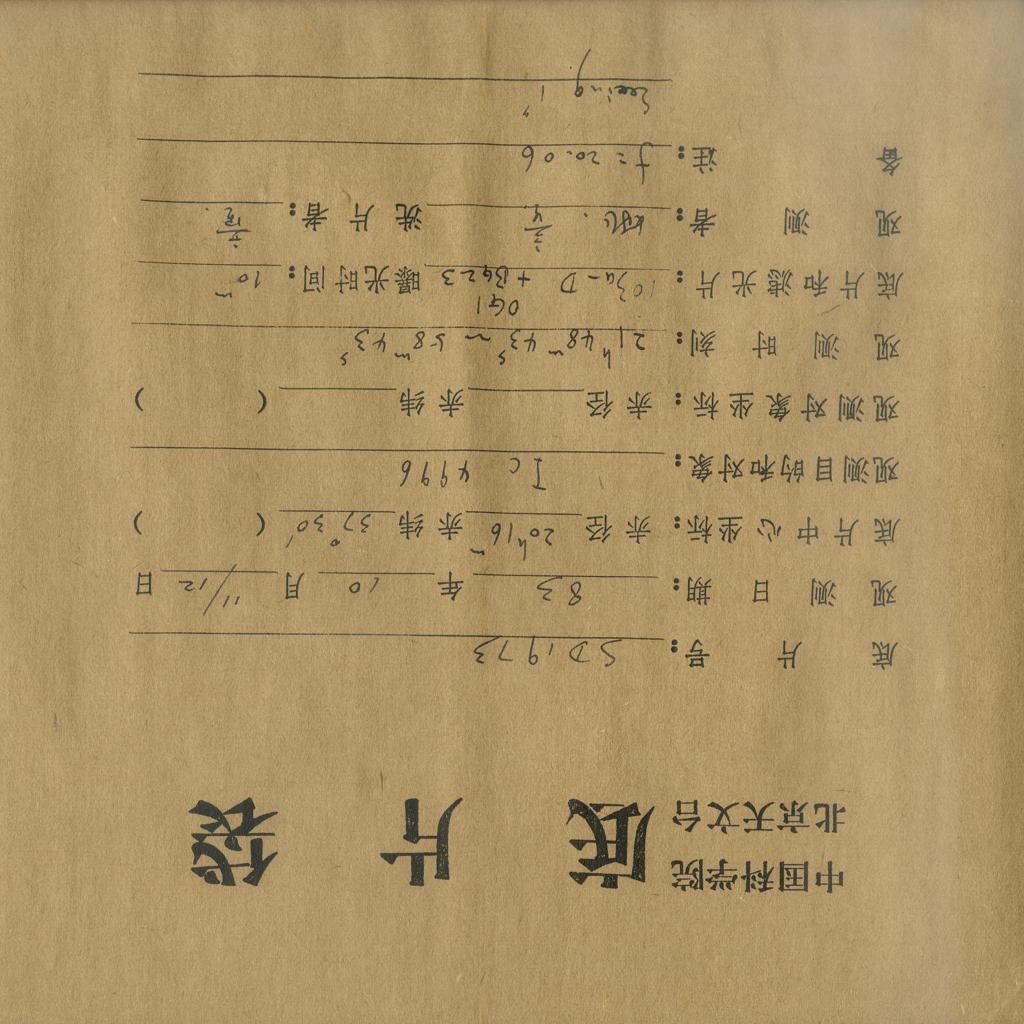 中国科学院
北京天文台
底片袋
底片号：SD1973
观测日期：83年10月11/12日
底片中心坐标：赤径20h16m赤纬37°30′（ ）
观测目的和对象：IC 4996
观测对象坐标：赤径 赤纬（ ）
观测时刻：21h48m43s~58m43s
OG1
底片和滤光片：103a-D + BG23 曝光时间：10m
观测者： 洗片者：
备注：f=20.06
Seeing 1"